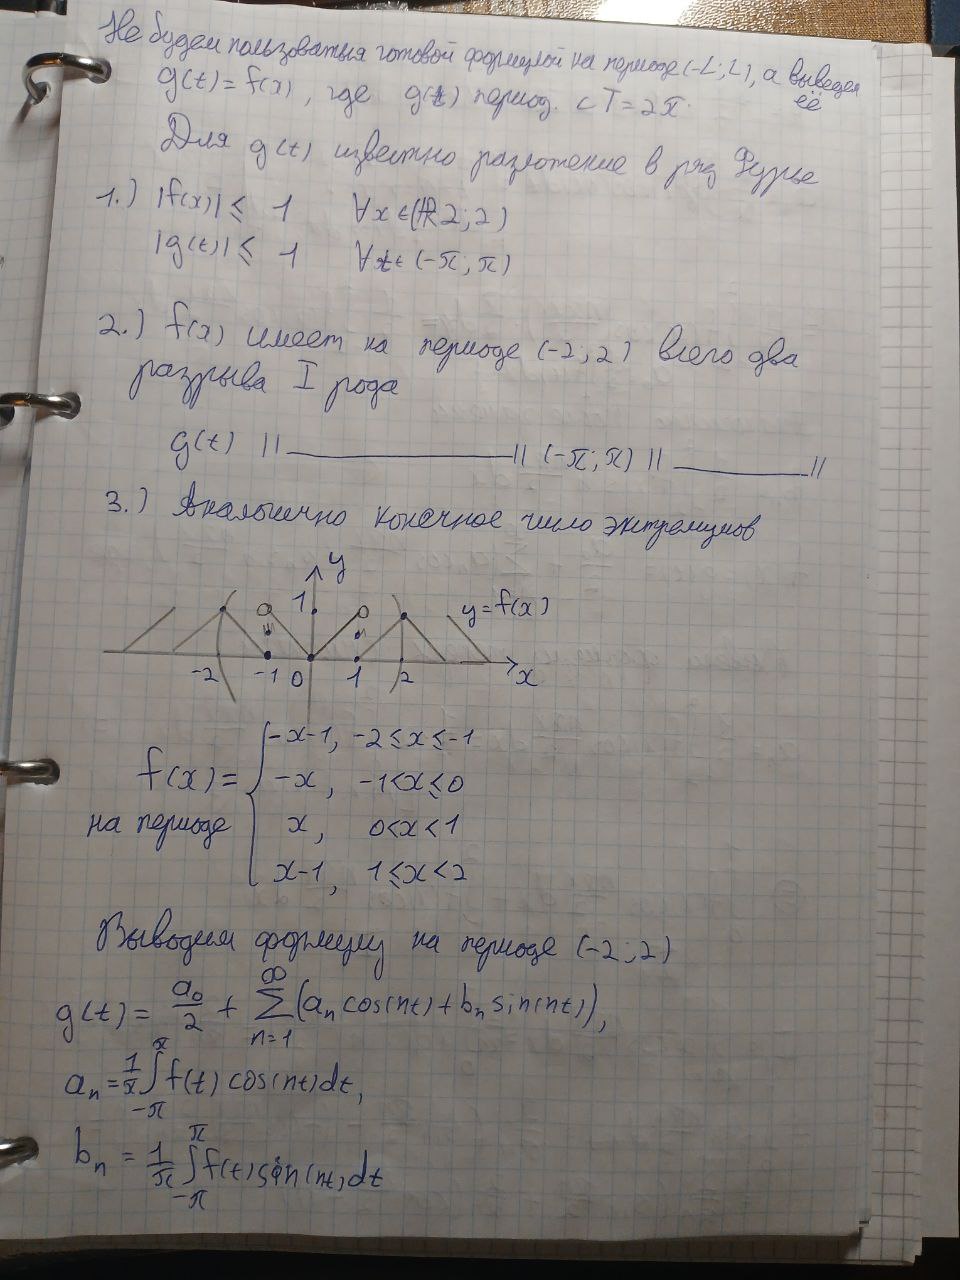 Не будем пользоваться готовой формулой на периоде (-L; L), а выведем её
g(t) = f(x), где g(t) период. с T = 2π.
Для g(t) известно разложение в ряд Фурье
1.) |f(x)| ≤ 1 ∀x ∈ (-2; 2)
|g(t)| ≤ 1 ∀t ∈ (-π; π)
2.) f(x) имеет на периоде (-2; 2) всего два
разрыва I рода
g(t) || ———— || (-π; π) || ———— ||
3.) Аналогично конечное число экстремумов
y
1
y = f(x)
-2 -1 0 1 2 x
f(x) = { -x-1, -2 ≤ x ≤ -1
-x, -1 < x ≤ 0
на периоде
x, 0 < x < 1
x-1, 1 ≤ x < 2
Выводим формулу на периоде (-2; 2)
g(t) = a₀/2 + ∑_{n=1}^{∞} (aₙ cos(nt) + bₙ sin(nt)),
aₙ = 1/π ∫_{-π}^{π} f(t) cos(nt) dt,
bₙ = 1/π ∫_{-π}^{π} f(t) sin(nt) dt